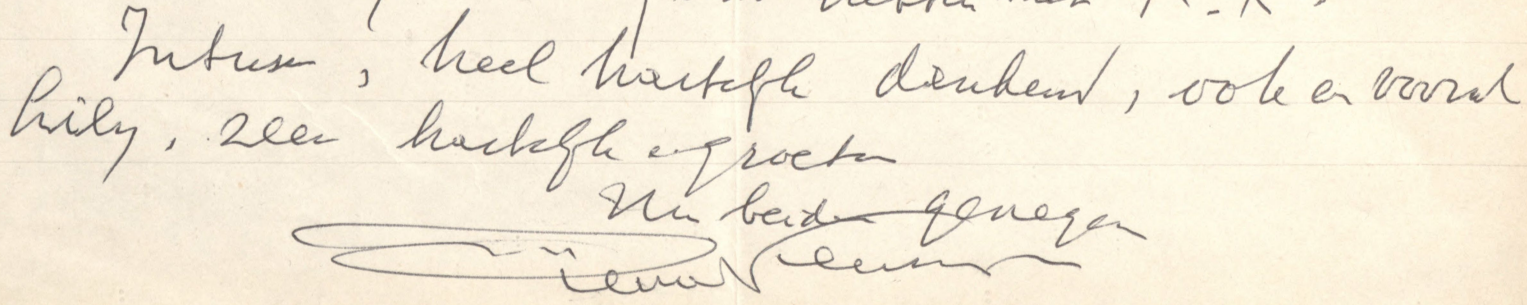 hebben met K.K.
Intussen, heel hartelijk dankend, ook en vooral
Wily, zeer hartelijke groeten
Uw beider genegen